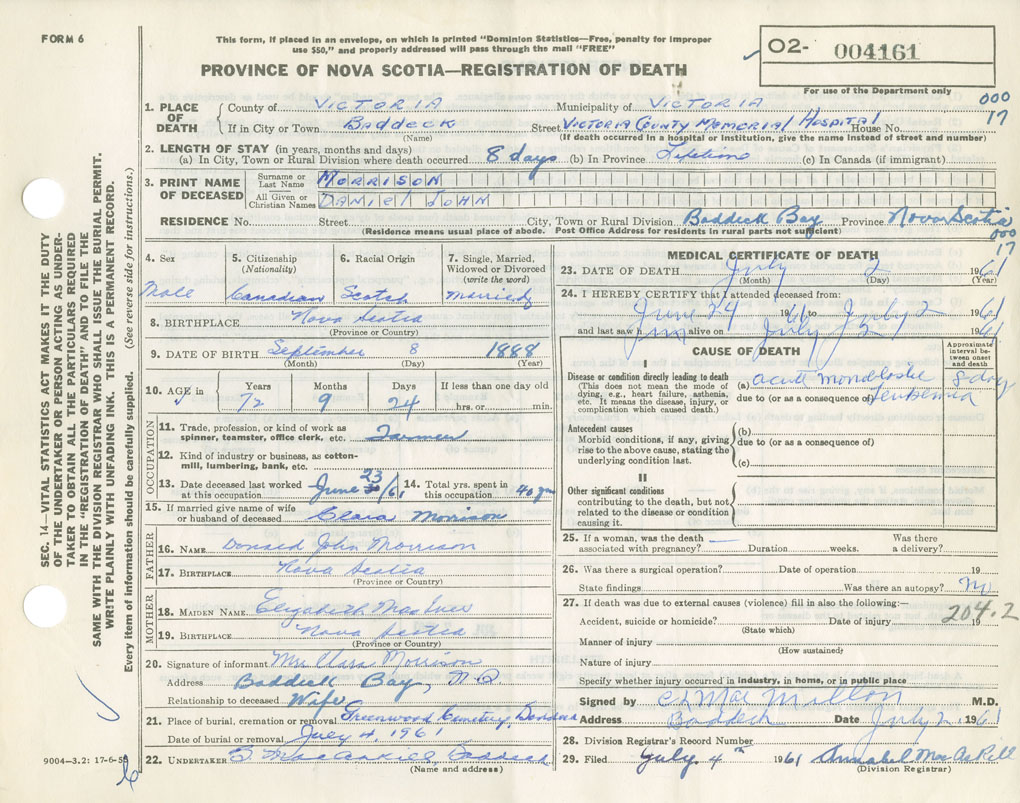 FORM 6
This form, if placed in an envelope, on which is printed "Dominion Statistics—Free, penalty for improper
use $50," and properly addressed will pass through the mail "FREE"
PROVINCE OF NOVA SCOTIA—REGISTRATION OF DEATH
02- 004161
For use of the Department only
000
17
1. PLACE OF DEATH County of VICTORIA Municipality of VICTORIA
If in City or Town Baddeck Street VICTORIA COUNTY MEMORIAL HOSPITAL House No.
(Name) (If death occurred in a hospital or institution, give the name instead of street and number)
2. LENGTH OF STAY (in years, months and days)
(a) In City, Town or Rural Division where death occurred 8 days (b) In Province Lifetime (c) In Canada (if immigrant)
3. PRINT NAME OF DECEASED Surname or Last Name MORRISON
All Given or Christian Names DANIEL JOHN
RESIDENCE No. Street City, Town or Rural Division Baddeck Bay Province Nova Scotia
(Residence means usual place of abode. Post Office Address for residents in rural parts not sufficient)
000
17
4. Sex 5. Citizenship (Nationality) 6. Racial Origin 7. Single, Married, Widowed or Divorced (write the word)
Male Canadian Scotch Married
8. BIRTHPLACE Nova Scotia
(Province or Country)
9. DATE OF BIRTH September 8 1888
(Month) (Day) (Year)
10. AGE in Years Months Days If less than one day old
72 9 24 hrs. or min.
OCCUPATION
11. Trade, profession, or kind of work as
spinner, teamster, office clerk, etc. Farmer
12. Kind of industry or business, as cotton-
mill, lumbering, bank, etc.
13. Date deceased last worked at this occupation June 23/61 14. Total yrs. spent in this occupation 40 yrs
15. If married give name of wife
or husband of deceased Clara Morrison
FATHER
16. NAME Donald John Morrison
17. BIRTHPLACE Nova Scotia
(Province or Country)
MOTHER
18. MAIDEN NAME Elizabeth MacIver
19. BIRTHPLACE Nova Scotia
(Province or Country)
20. Signature of informant Mrs Clara Morrison
Address Baddeck Bay, N.S.
Relationship to deceased Wife
21. Place of burial, cremation or removal Greenwood Cemetery,
Date of burial or removal July 4, 1961
22. UNDERTAKER Baddeck
(Name and address)
MEDICAL CERTIFICATE OF DEATH
23. DATE OF DEATH July 2 1961
(Month) (Day) (Year)
24. I HEREBY CERTIFY that I attended deceased from:
June 24 1961 to July 2 1961
and last saw him alive on July 2 1961
CAUSE OF DEATH
Approximate interval between onset and death
I
Disease or condition directly leading to death
(This does not mean the mode of
dying, e.g., heart failure, asthenia,
etc. It means the disease, injury, or
complication which caused death.)
(a) acute Leukemia 8 days
due to (or as a consequence of)
Antecedent causes
Morbid conditions, if any, giving
rise to the above cause, stating the
underlying condition last.
(b)
due to (or as a consequence of)
(c)
II
Other significant conditions
contributing to the death, but not
related to the disease or condition
causing it.
25. If a woman, was the death — Was there
associated with pregnancy? Duration weeks. a delivery?
26. Was there a surgical operation? Date of operation 19
State findings Was there an autopsy? No
27. If death was due to external causes (violence) fill in also the following:—
204.2
Accident, suicide or homicide? Date of injury 19
(State which)
Manner of injury
(How sustained)
Nature of injury
Specify whether injury occurred in industry, in home, or in public place
Signed by C L MacMillan M.D.
Address Baddeck Date July 2 1961
28. Division Registrar's Record Number
29. Filed July 4th 1961 Annabel MacAskill
(Division Registrar)
SEC. 14—VITAL STATISTICS ACT MAKES IT THE DUTY
OF THE UNDERTAKER OR PERSON ACTING AS UNDER-
TAKER TO OBTAIN ALL THE PARTICULARS REQUIRED
IN THE "REGISTRATION OF DEATH" AND TO FILE THE
SAME WITH THE DIVISION REGISTRAR WHO SHALL ISSUE THE BURIAL PERMIT.
WRITE PLAINLY WITH UNFADING INK. THIS IS A PERMANENT RECORD.
Every item of information should be carefully supplied. (See reverse side for instructions.)
9004-3.2: 17-6-58